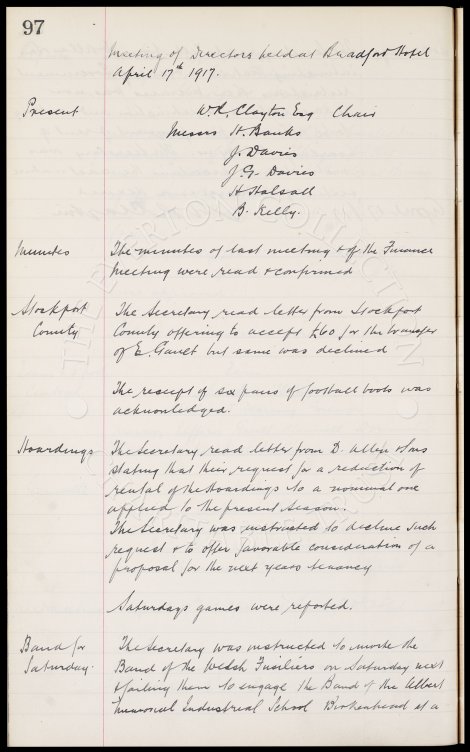 97
Meeting of Directors held at Bradford Hotel
April 17th 1917.
Present W.R. Clayton Esq Chair
Messrs H. Banks
J. Davies
J.G. Davies
H Halsall
B. Kelly.
Minutes The minutes of last meeting & of the Finance
Meeting were read & confirmed
Stockport The Secretary read letter from Stockport
County County offering to accept £60 for the transfer
of E. Gault but same was declined
The receipt of six pairs of football boots was
acknowledged.
Hoardings The Secretary read letter from D. Allen & Sons
stating that their request for a reduction of
rental of the Hoardings to a nominal one
applied to the present season.
The Secretary was instructed to decline such
request & to offer favorable consideration of a
proposal for the next years tenancy
Saturdays games were reported.
Band for The Secretary was instructed to invite the
Saturday. Band of the Welsh Fusiliers on Saturday next
& failing them to engage the Band of the Albert
Memorial Industrial School Birkenhead at a